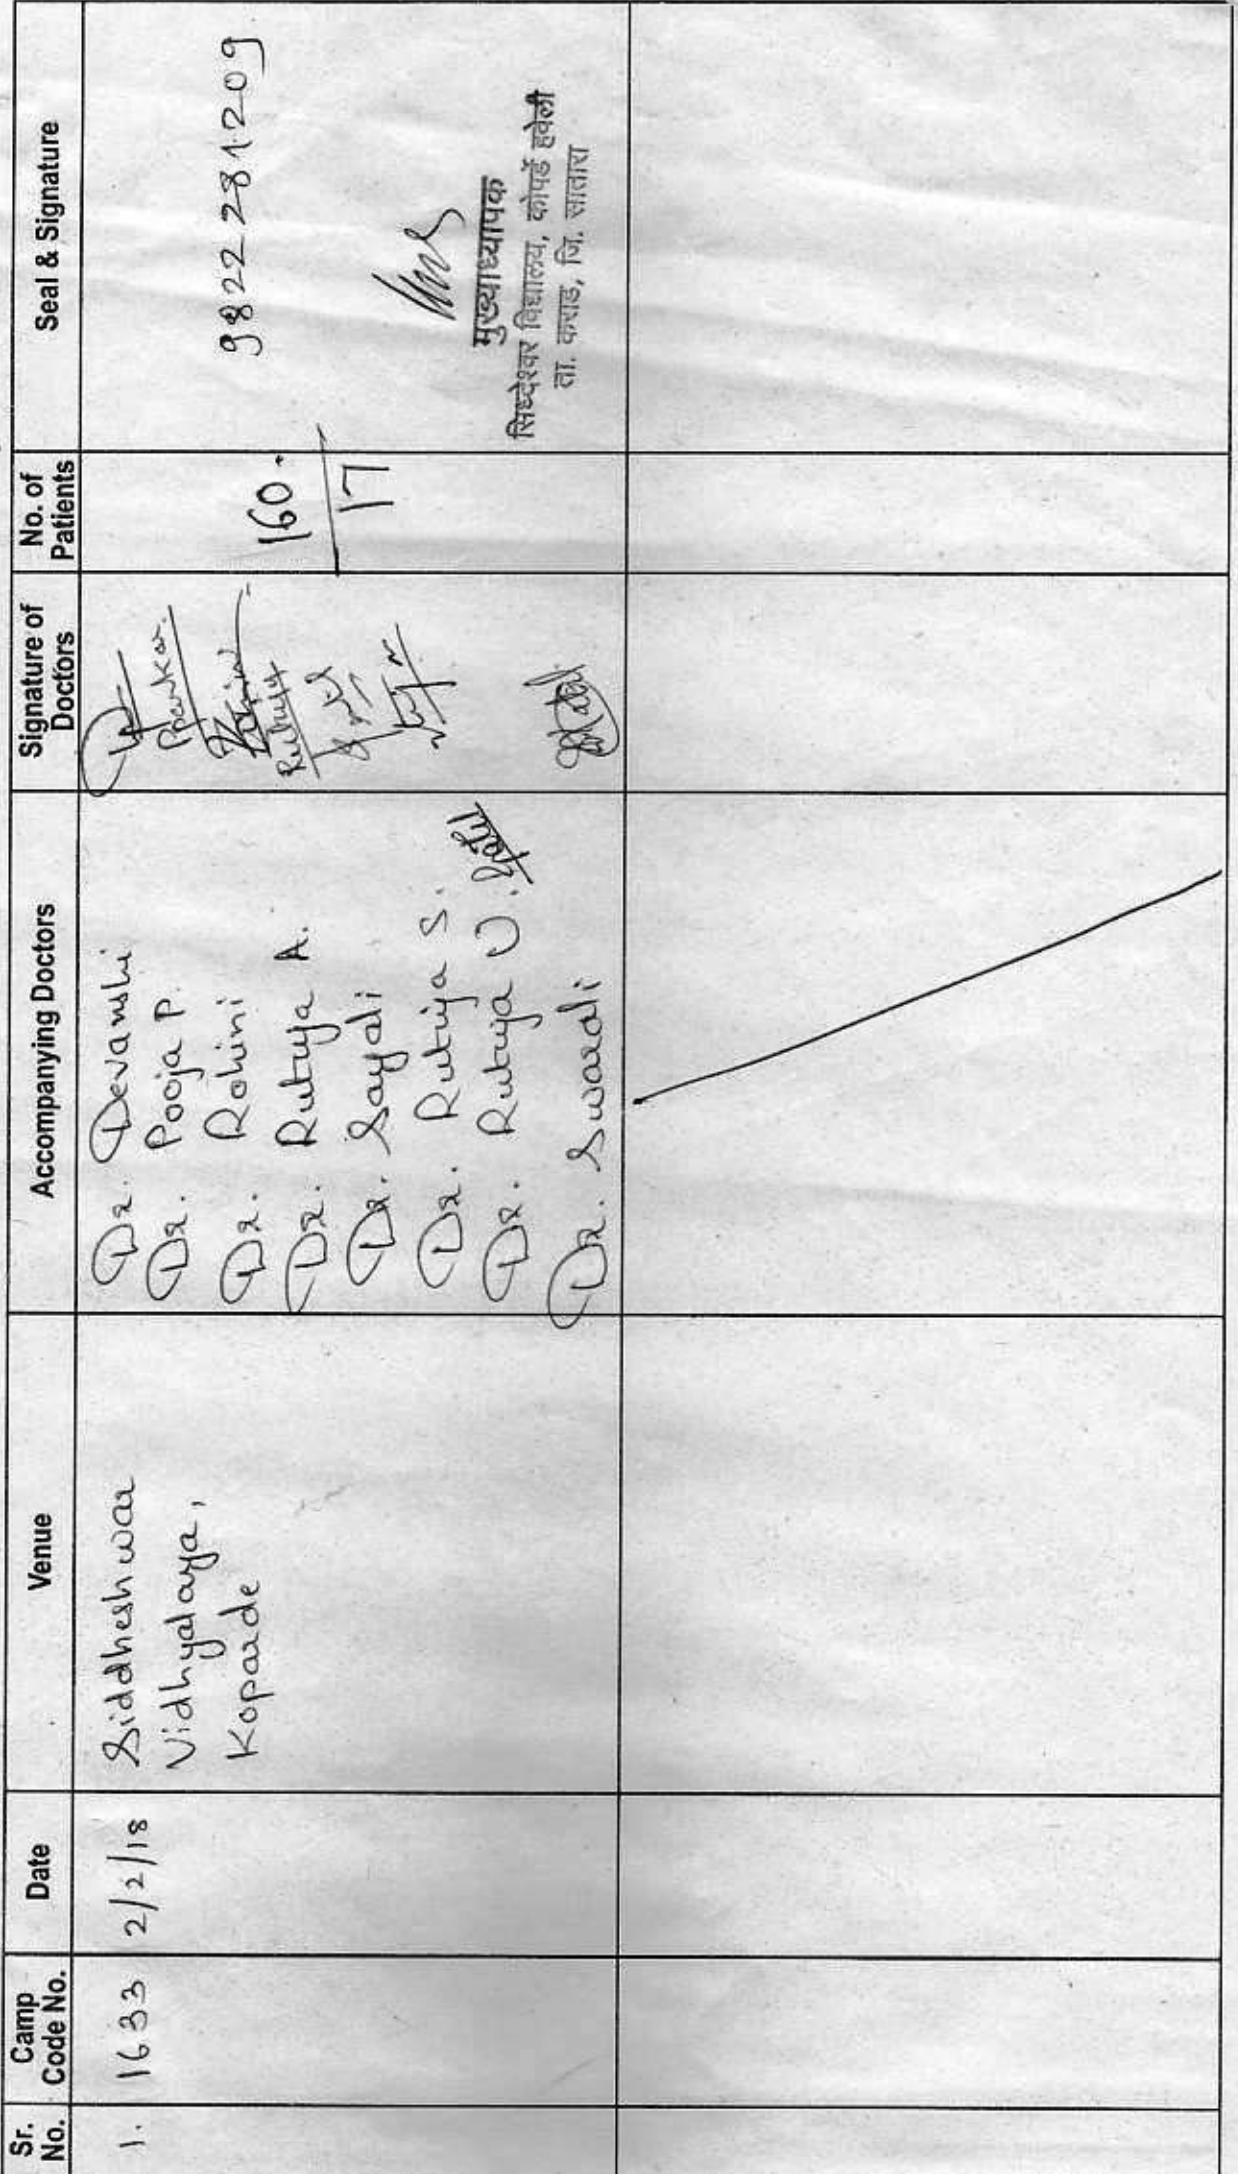 Sr. No.
Camp Code No.
Date
Venue
Accompanying Doctors
Signature of Doctors
No. of Patients
Seal & Signature
1.
1633
2/2/18
Siddheshwar
Vidhyalaya,
Koparde
Dr. Devanshi
Dr. Pooja P.
Dr. Rohini
Dr. Rutuja A.
Dr. Sayali
Dr. Rutuja S.
Dr. Rutuja U.
Dr. Swarali
160.
17
9822281209
मुख्याध्यापक
सिध्देश्वर विद्यालय, कोपर्डे हवेली
ता. कराड, जि. सातारा